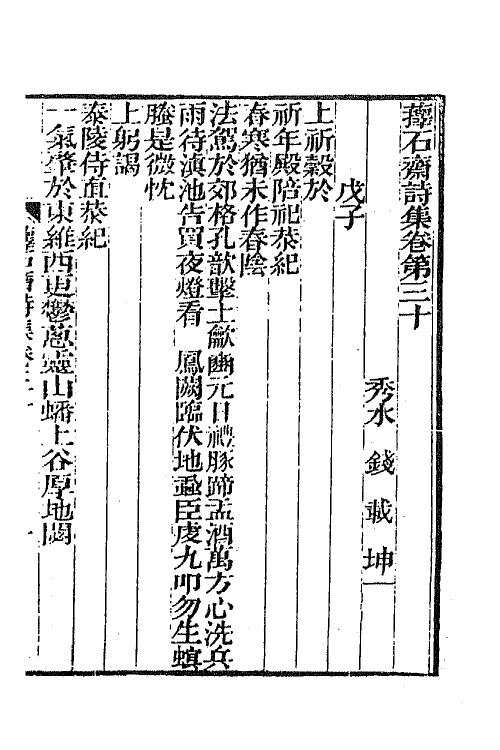 蘀石齋詩集卷第三十
秀水 錢載 坤一
戊子
上祈穀於
祈年殿陪祀恭紀
春寒猶未作春陰
法駕於郊格孔歆鑿土龡豳元日禮豚蹄盂酒萬方心洗兵
雨待滇池告買夜燈看 鳳闕臨伏地聽臣虔九叩勿生螟
螣是微忱
上躬謁
泰陵侍直恭紀
一氣肇於東維西更鬱蔥靈山蟠上谷厚地閟